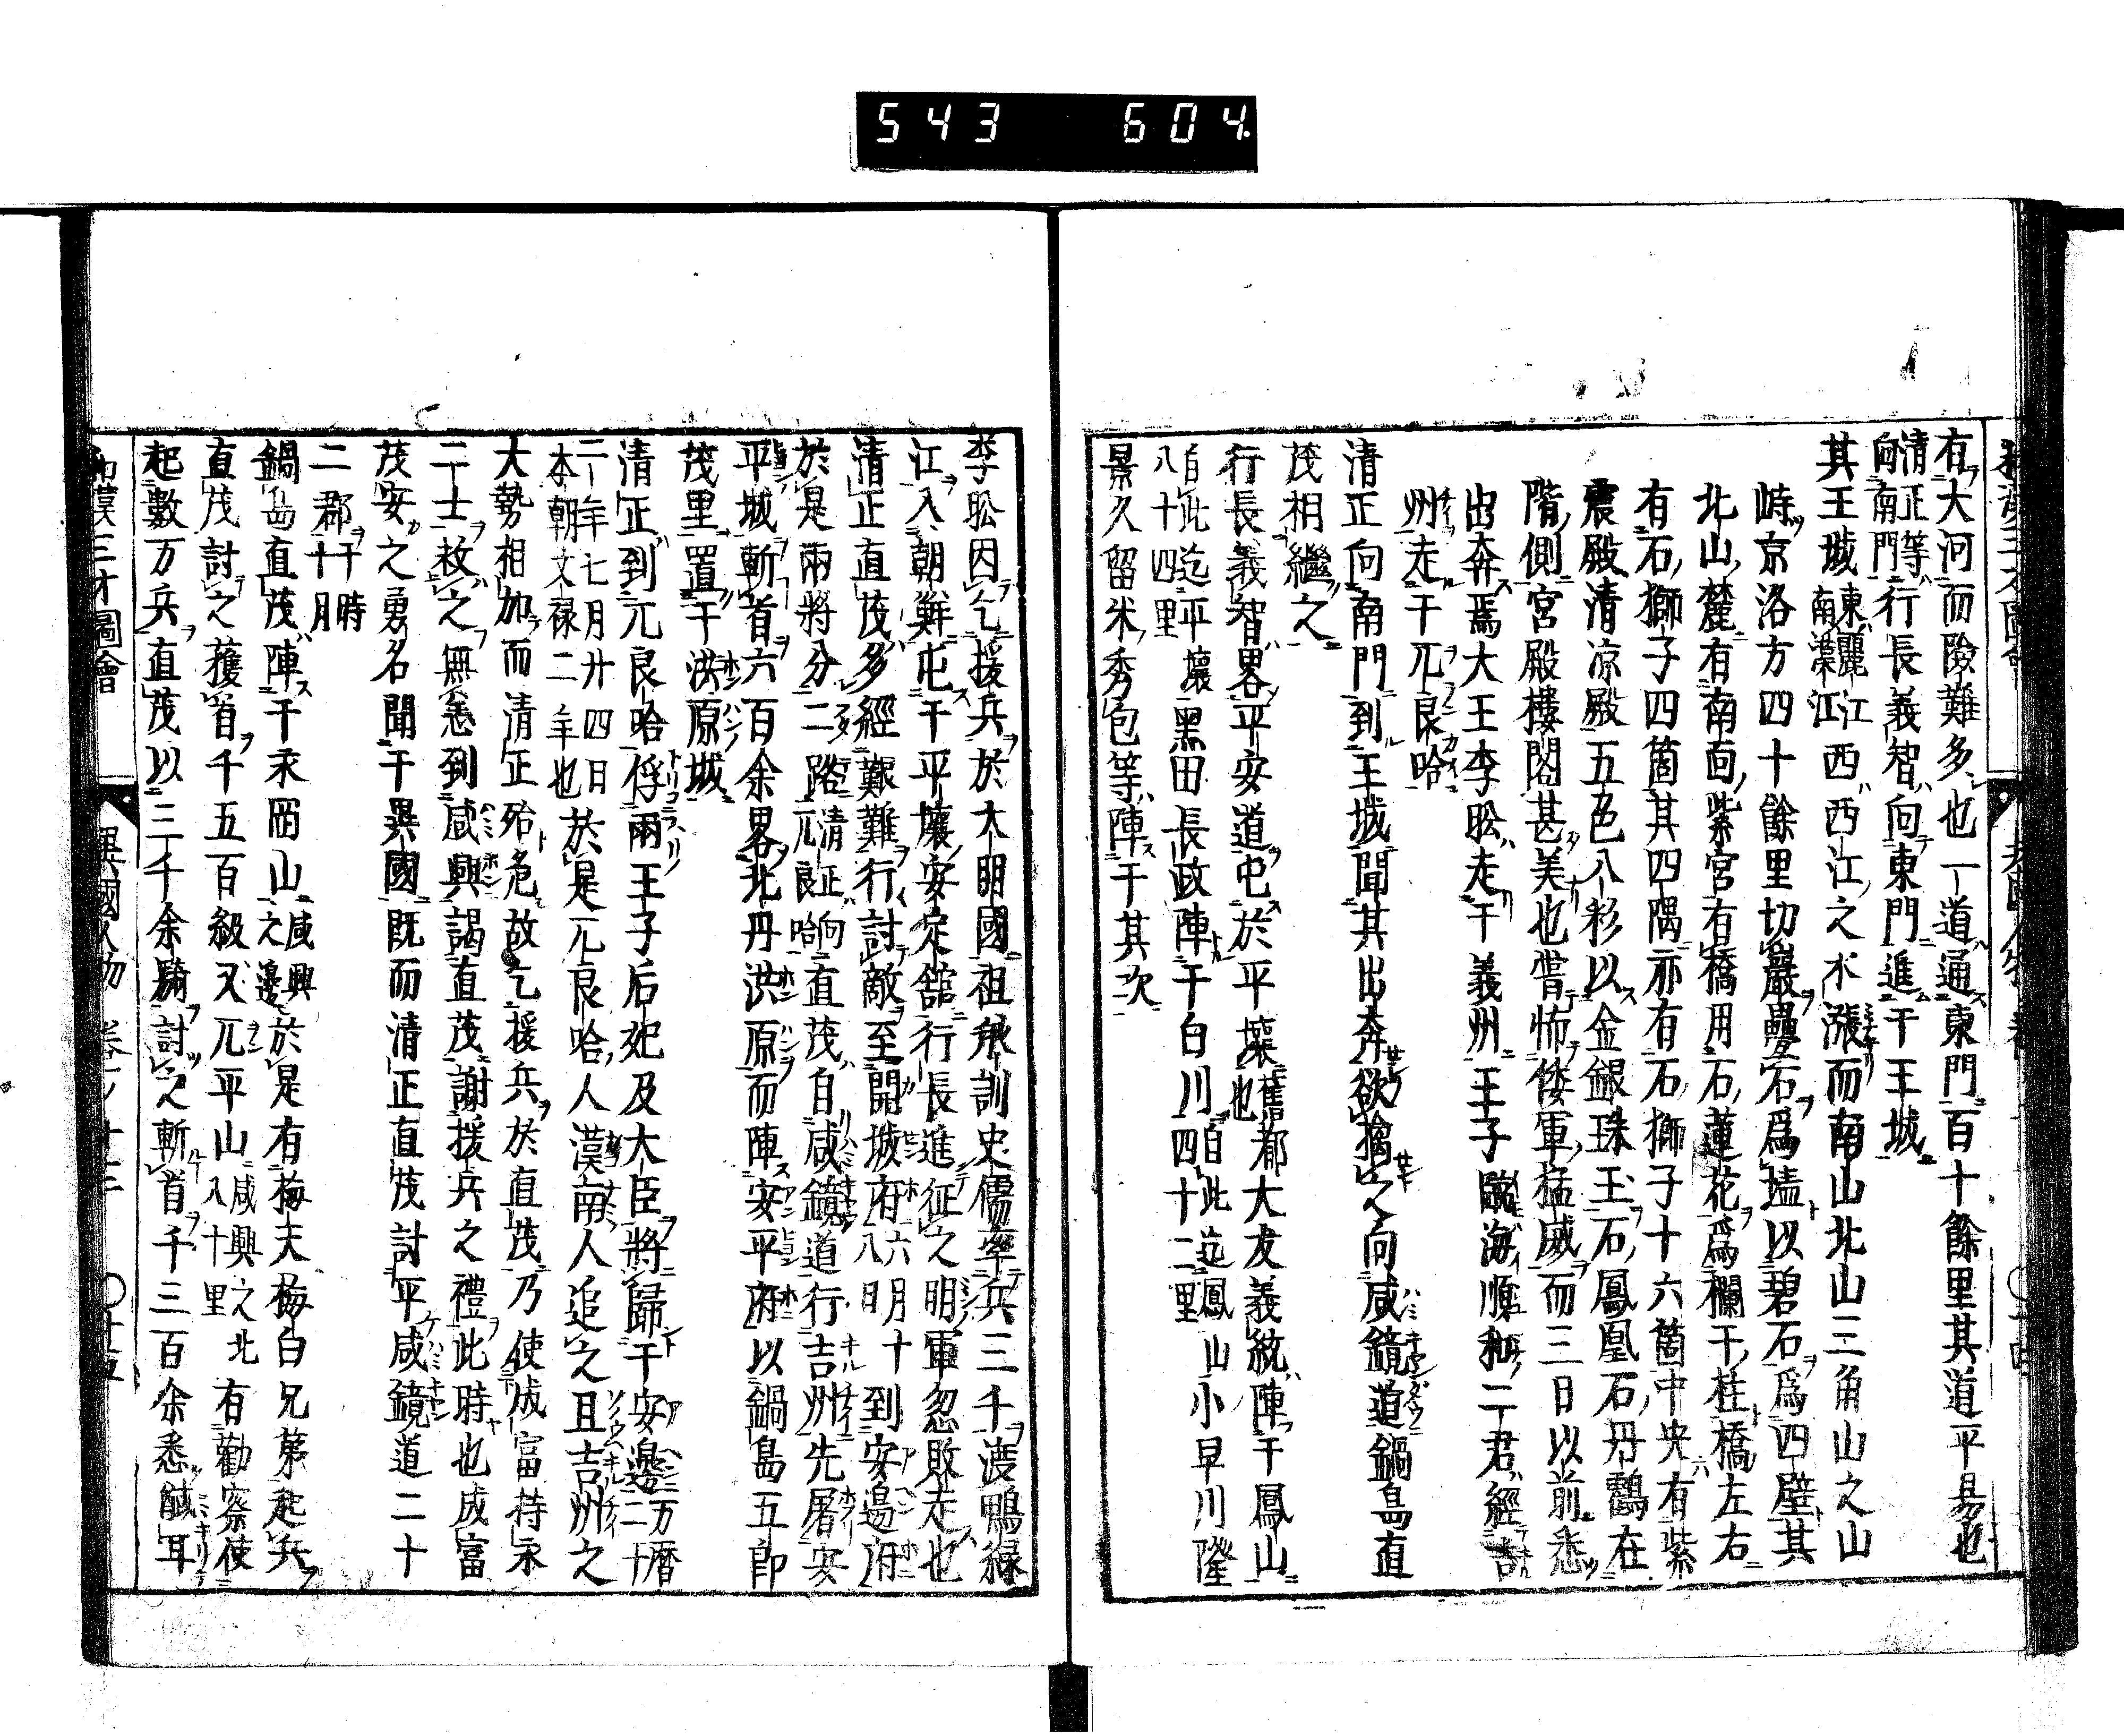 543 604
有大河而險難多也一道通東門百十餘里其道平易也
清正等向南門行長義智向東門進于王城
其王城東麗江南漢江西西江之水漲而南山北山三角山之山
峙京洛方四十餘里切巖疊石爲墻以碧石爲四壁其
北山麓有南面紫宮有橋用石蓮花爲欄干柱橋左右
有石獅子四箇其四隅亦有石獅子十六箇中央有紫
震殿清凉殿五色八彩以金銀珠玉石鳳凰石丹霱在
階側宮殿樓閣甚美也甞怖倭軍猛威而三日以前悉
出奔焉大王李昖走于義州王子臨海順和二君經
州走于兀良哈
清正向南門到王城聞其出奔欲擒之向咸鏡道鍋島直
茂相繼之
行長義智畧平安道屯於平壤舊都也大友義統陣于鳳山
自此迄平壤八十四里黑田長政陣于白川自此迄鳳山四十二里小早川隆
景久留米秀包等陣于其次
李昖因乞援兵於大明國祖承訓史儒率兵三千渡鴨綠
江入朝鮮屯于平壤安定舘行長進征之明軍忽敗走也
清正直茂多經艱難行討敵至開城府六月十八日到安邉府
於是兩將分二路清正向兀良哈直茂自咸鏡道行吉洲先屠安
平城斬首六百余畧北丹洪原而陣安平府以鍋島五郎
茂里置于洪原城
清正到兀良哈俘兩王子后妃及大臣將歸于安邊万曆二十
二年七月廿四日本朝文禄二年也於是兀良哈人漢南人追之且吉洲之
大勢相加而清正殆危故乞援兵於直茂乃使成富持永
二士救之無恙到咸興謁直茂謝援兵之禮此時也成富
茂安之勇名聞于異國既而清正直茂討平咸鏡道二十
二郡于時十月
鍋島直茂陣于末岡山咸興之邊於是有梅天梅白兄第起兵
直茂討之獲首千五百級又兀平山咸興之北八十里有勸察使
起數万兵直茂以三千余騎討之斬首千三百余悉馘耳
和漢三才圖會 異國人物 卷之十三 〇十五